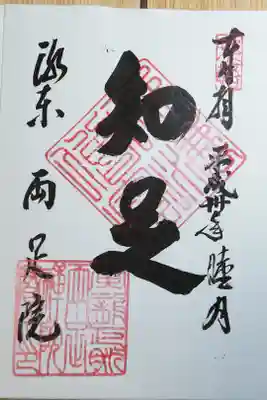 奉拝 平成卅年睦月
知足
洛東 両足院